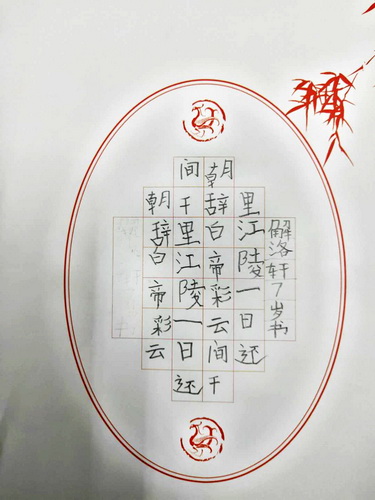 朝辞白帝彩云
间千里江陵一日还
朝辞白帝彩云间千
里江陵一日还
解洛轩7岁书